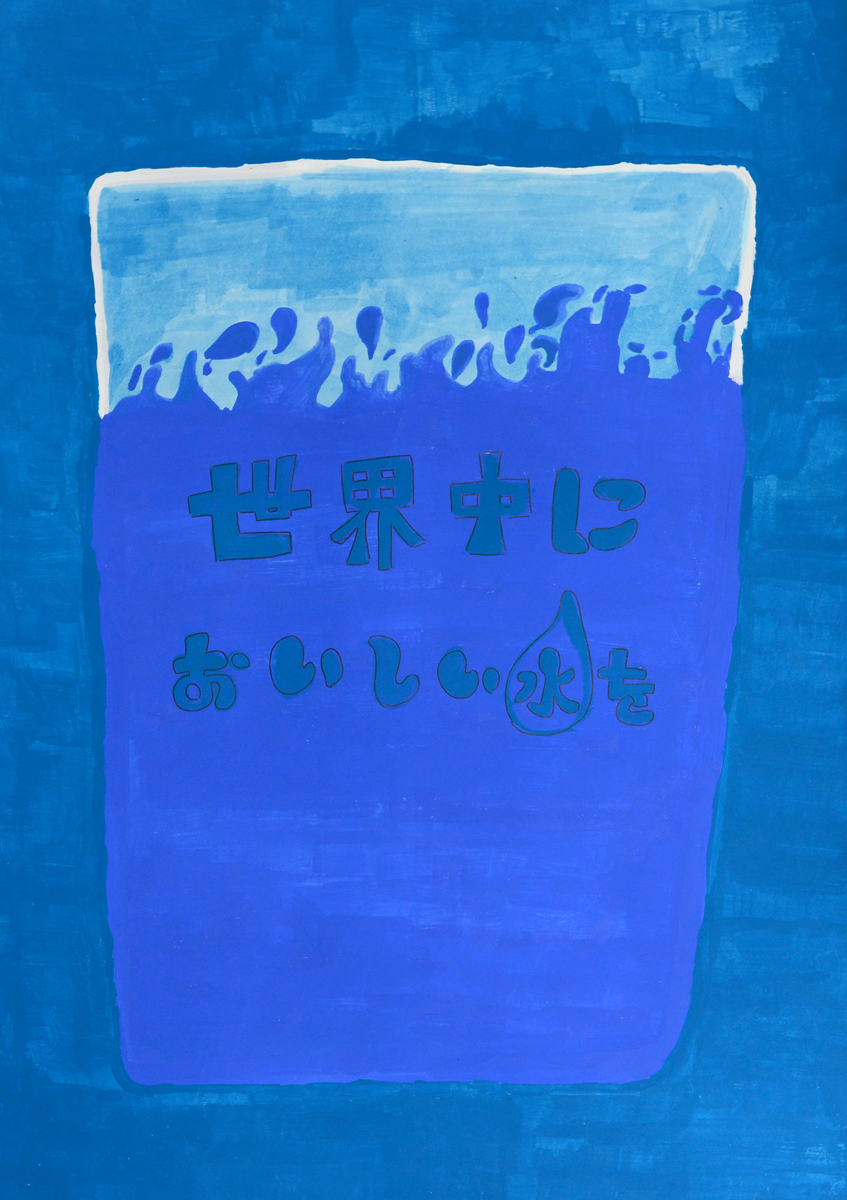 世界中に
おいしい水を